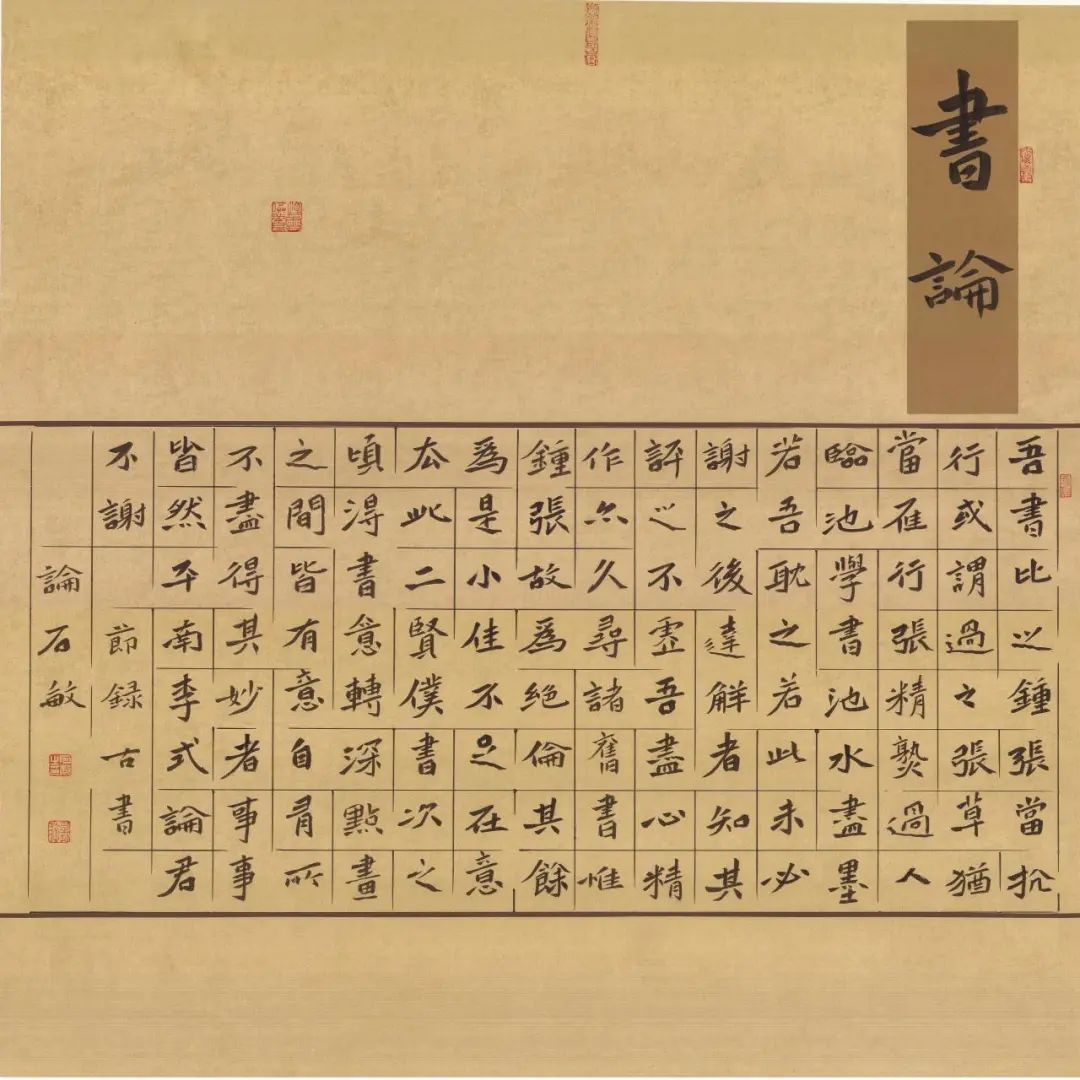 書論
吾書比之鍾張當抗
行或謂過之張草猶
當雁行張精熟過人
臨池學書池水盡墨
若吾耽之若此未必
謝之後達解者知其
評之不虛吾盡心精
作亦久尋諸舊書惟
鍾張故爲絕倫其餘
爲是小佳不足在意
去此二賢僕書次之
頃得書意轉深點畫
之間皆有意自有所
不盡得其妙者事事
皆然平南李式論君
不謝 節録古書
論石敏